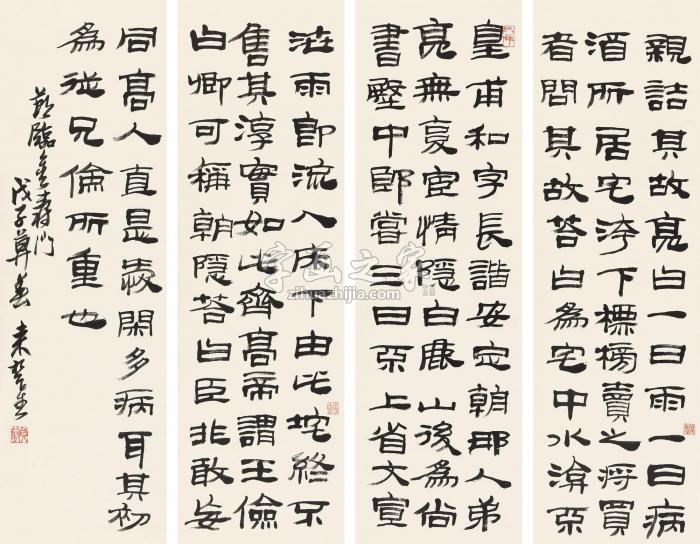 親詰其故亮曰一日雨一日病
酒所居宅洿下標榜賣之將買
者問其故荅曰為宅中水淹不
皇甫和字長諧安定朝那人弟
亮無复宦情隱白鹿山後為尚
書殿中郎嘗三日不上省文宣
泄雨即流入床下由此坨終不
售其淳實如此齊高帝謂王儉
曰卿可稱朝隱荅曰臣非敢妄
同高人直是愛閑多病耳其初
為從兄倫所重也
節臨金壽門
戊子暮春 來楚生
字画之家
zihuazhijia.com